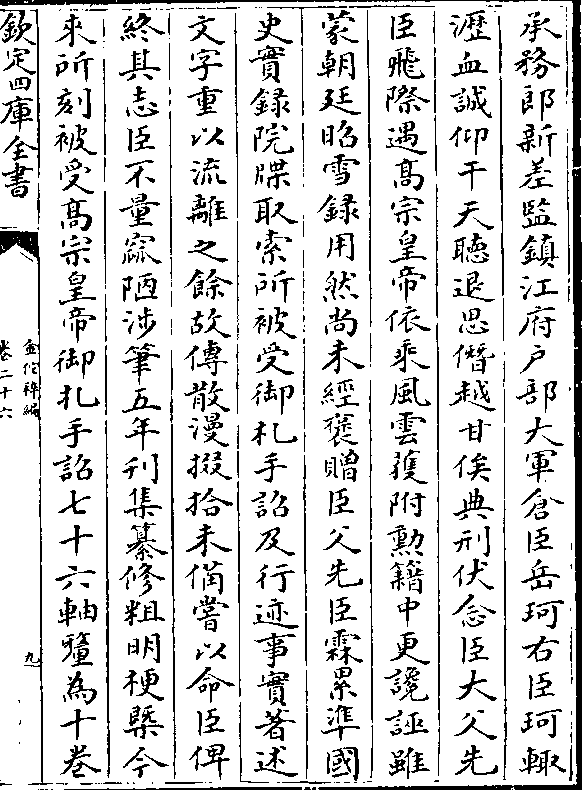 承務郎新差監鎮江府戶部大軍倉臣岳珂右臣珂輙
瀝血誠仰干天聽退思僭越甘俟典刑伏念臣大父先
臣飛際遇髙宗皇帝依乘風雲獲附勲籍中更讒誣雖
蒙朝廷昭雪録用然尚未經襃贈臣父先臣霖累準國
史實録院牒取索所被受御札手詔及行迹事實著述
文字重以流離之餘故傳散漫掇拾未備嘗以命臣俾
終其志臣不量寡陋涉筆五年刋集纂修粗明梗槩今
來所刻被受髙宗皇帝御札手詔七十六軸釐為十卷
欽定四庫全書
金佗稡編
卷二十六
九